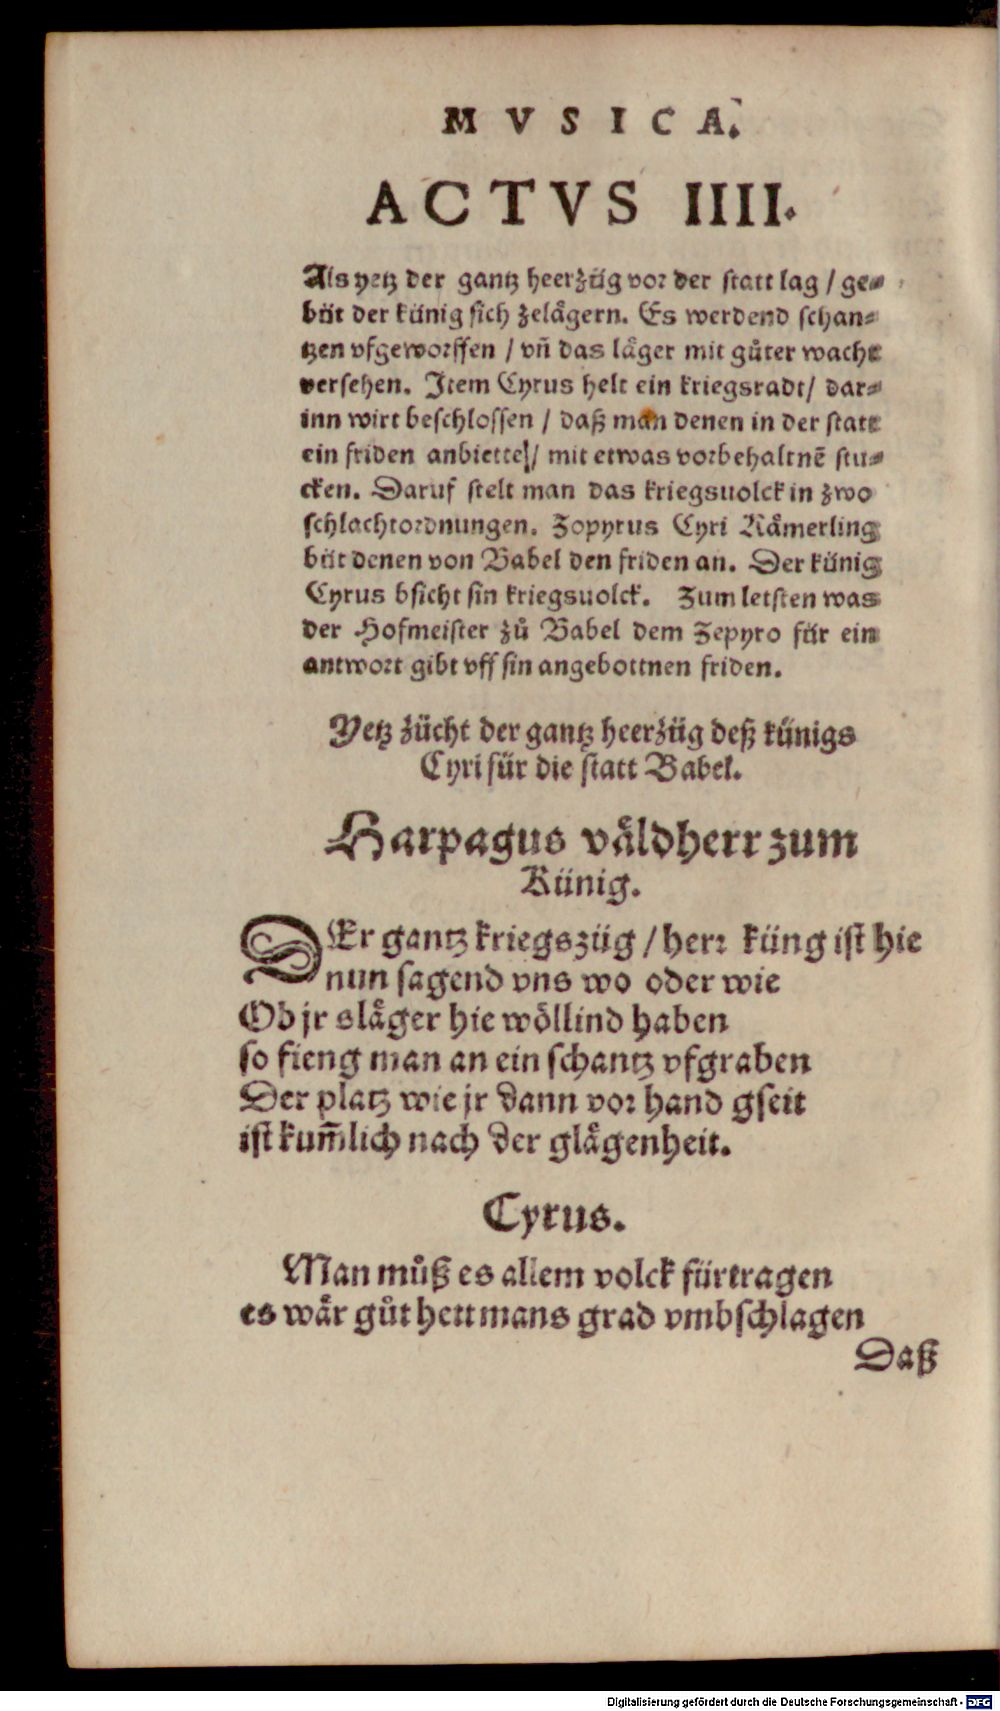 MVSICA.
ACTVS IIII.
Als yetz der gantz heerzüg vor der statt lag / ge-
büt der künig sich zelägern. Es werdend schan-
tzen vfgeworffen / vñ das läger mit gůter wacht
versehen. Item Cyrus helt ein kriegsradt / dar-
inn wirt beschlossen / daß man denen in der statt
ein friden anbiette / mit etwas vorbehaltnẽ stu-
cken. Daruf stelt man das kriegsuolck in zwo
schlachtordnungen. Zopyrus Cyri Kämerling
büt denen von Babel den friden an. Der künig
Cyrus bsicht sin kriegsuolck. Zum letsten was
der Hofmeister zů Babel dem Zepyro für ein
antwort gibt vff sin angebottnen friden.
Yetz zücht der gantz heerzüg deß künigs
Cyri für die statt Babel.
Harpagus väldherr zum
Künig.
DEr gantz kriegszüg / herr küng ist hie
nun sagend vns wo oder wie
Ob jr släger hie wöllind haben
so fieng man an ein schantz vfgraben
Der platz wie jr dann vor hand gseit
ist kum̃lich nach der glägenheit.
Cyrus.
Man můß es allem volck fürtragen
es wär gůt hett mans grad vmbschlagen
Daß
Digitalisierung gefördert durch die Deutsche Forschungsgemeinschaft - DFG